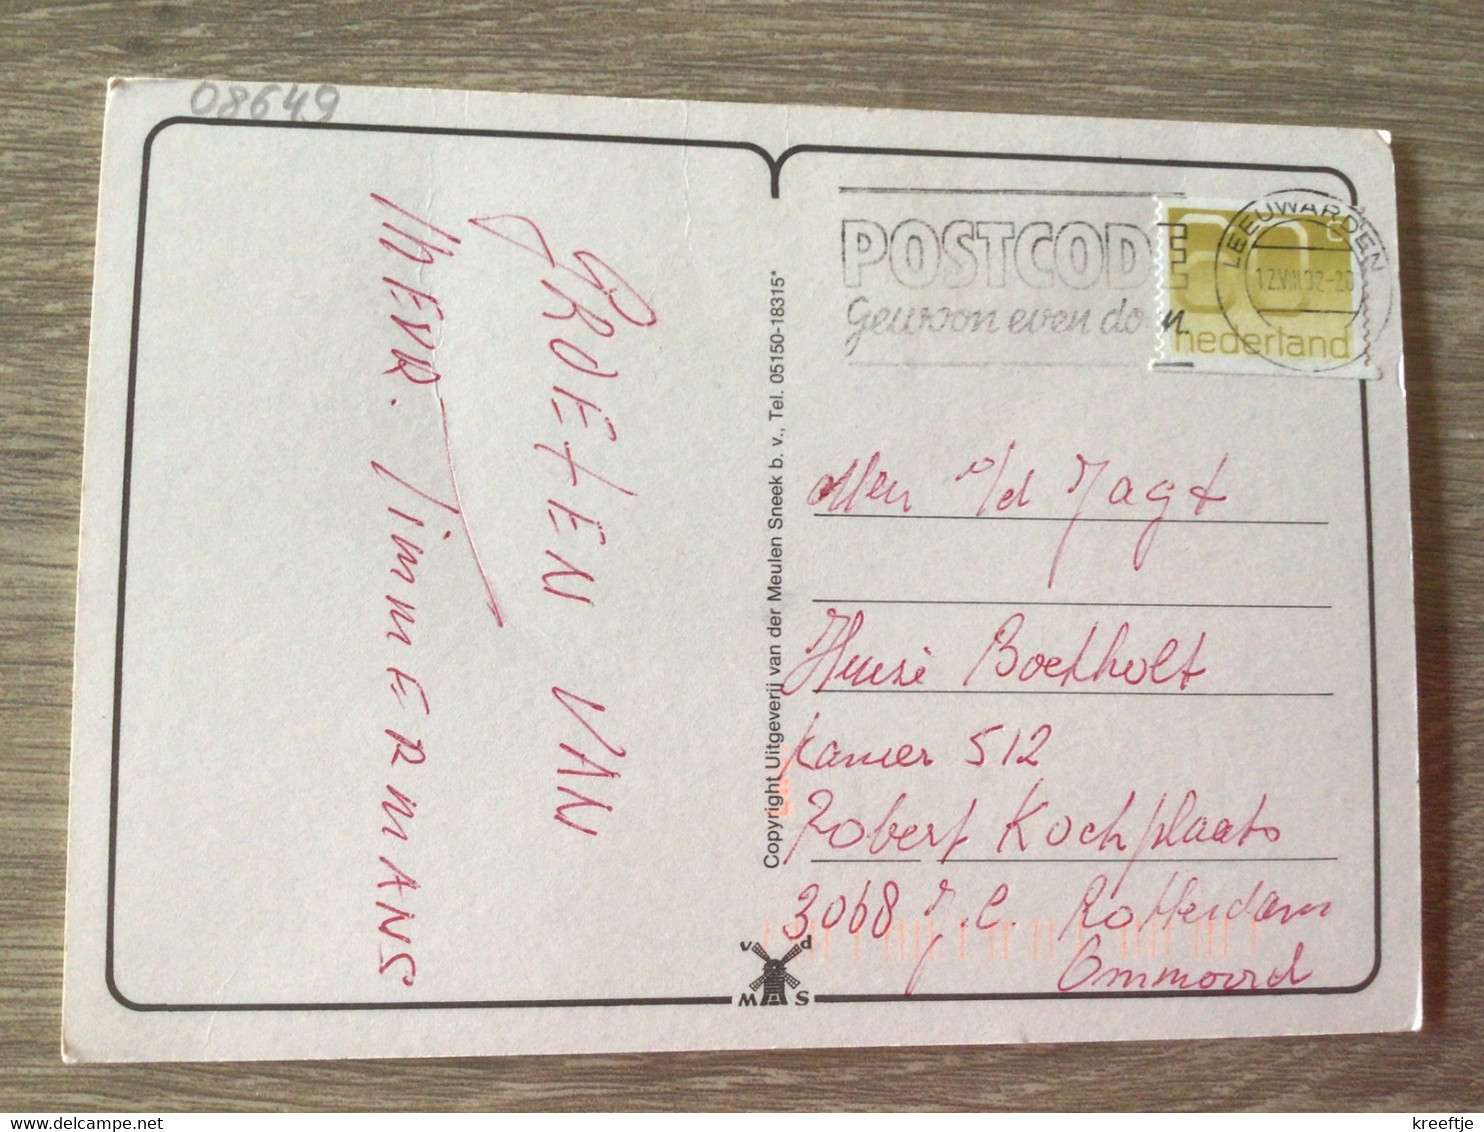 08649
GROETEN VAN
MEVR. TimmERmANS
Copyright Uitgeverij van der Meulen Sneek b. v., Tel. 05150-18315*
POSTCODE
Gewoon even do n
60 c
nederland
LEEUWARDEN
12.VIII.92-20
v/d Jagt
Huize Boekholt
Kamer 512
Robert Kochplaats
3068 J.C. Rotterdam
Ommoord
v d
M S
kreeftje